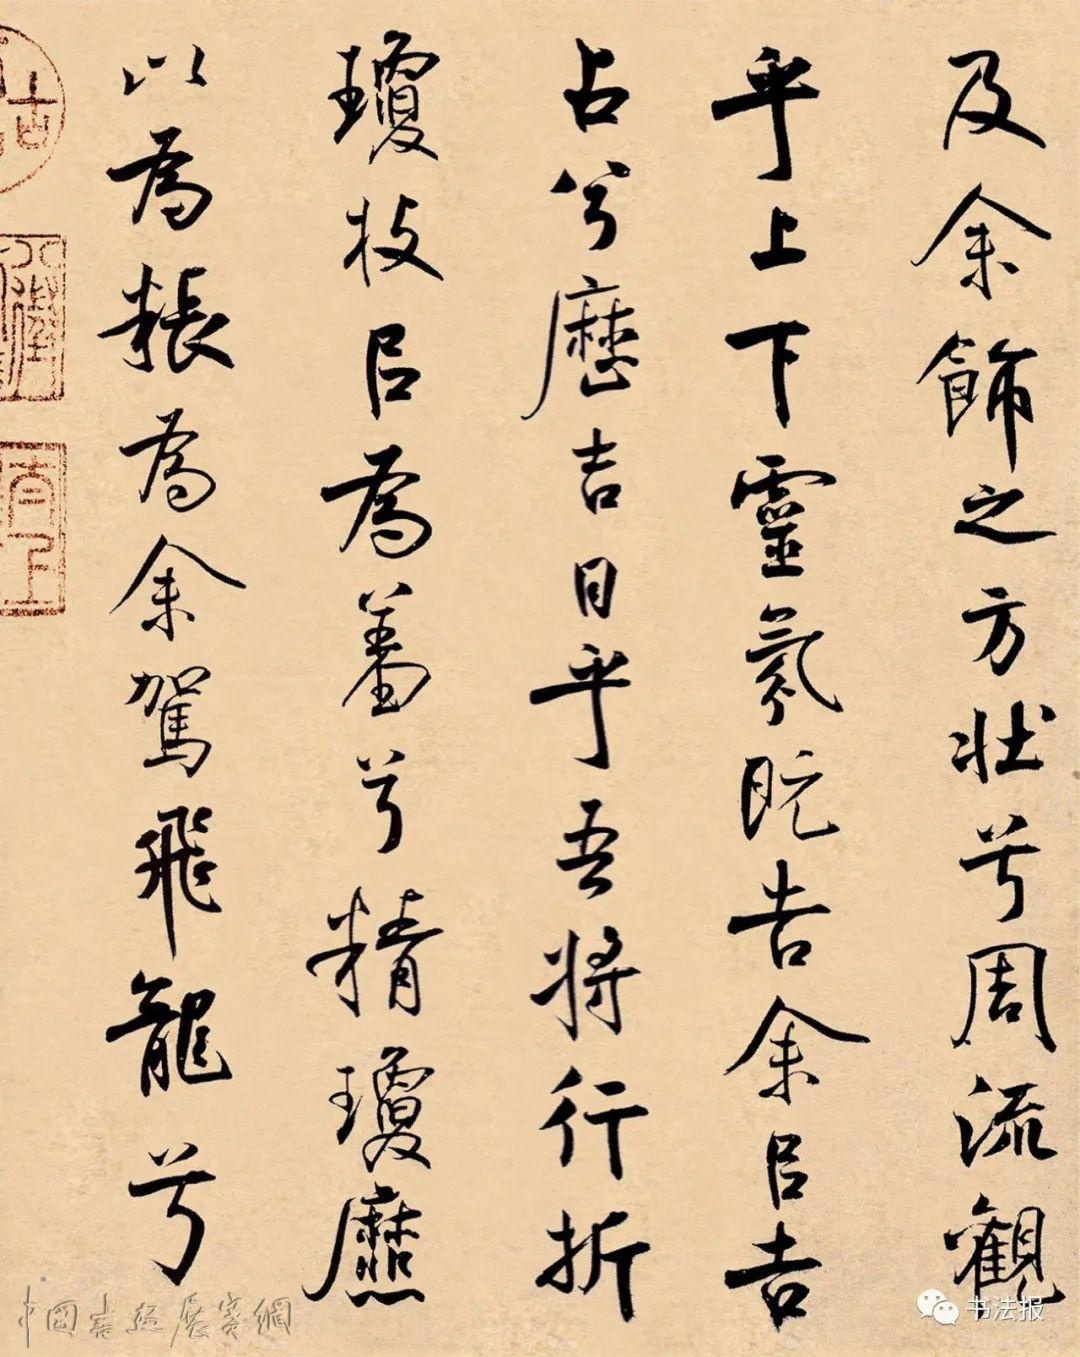 及余飾之方壯兮周流觀
乎上下靈氛既告余㠯吉
占兮歷吉日乎吾將行折
瓊枝㠯為羞兮精瓊爢
以為粻為余駕飛龍兮
中國書法展賽網
书法报